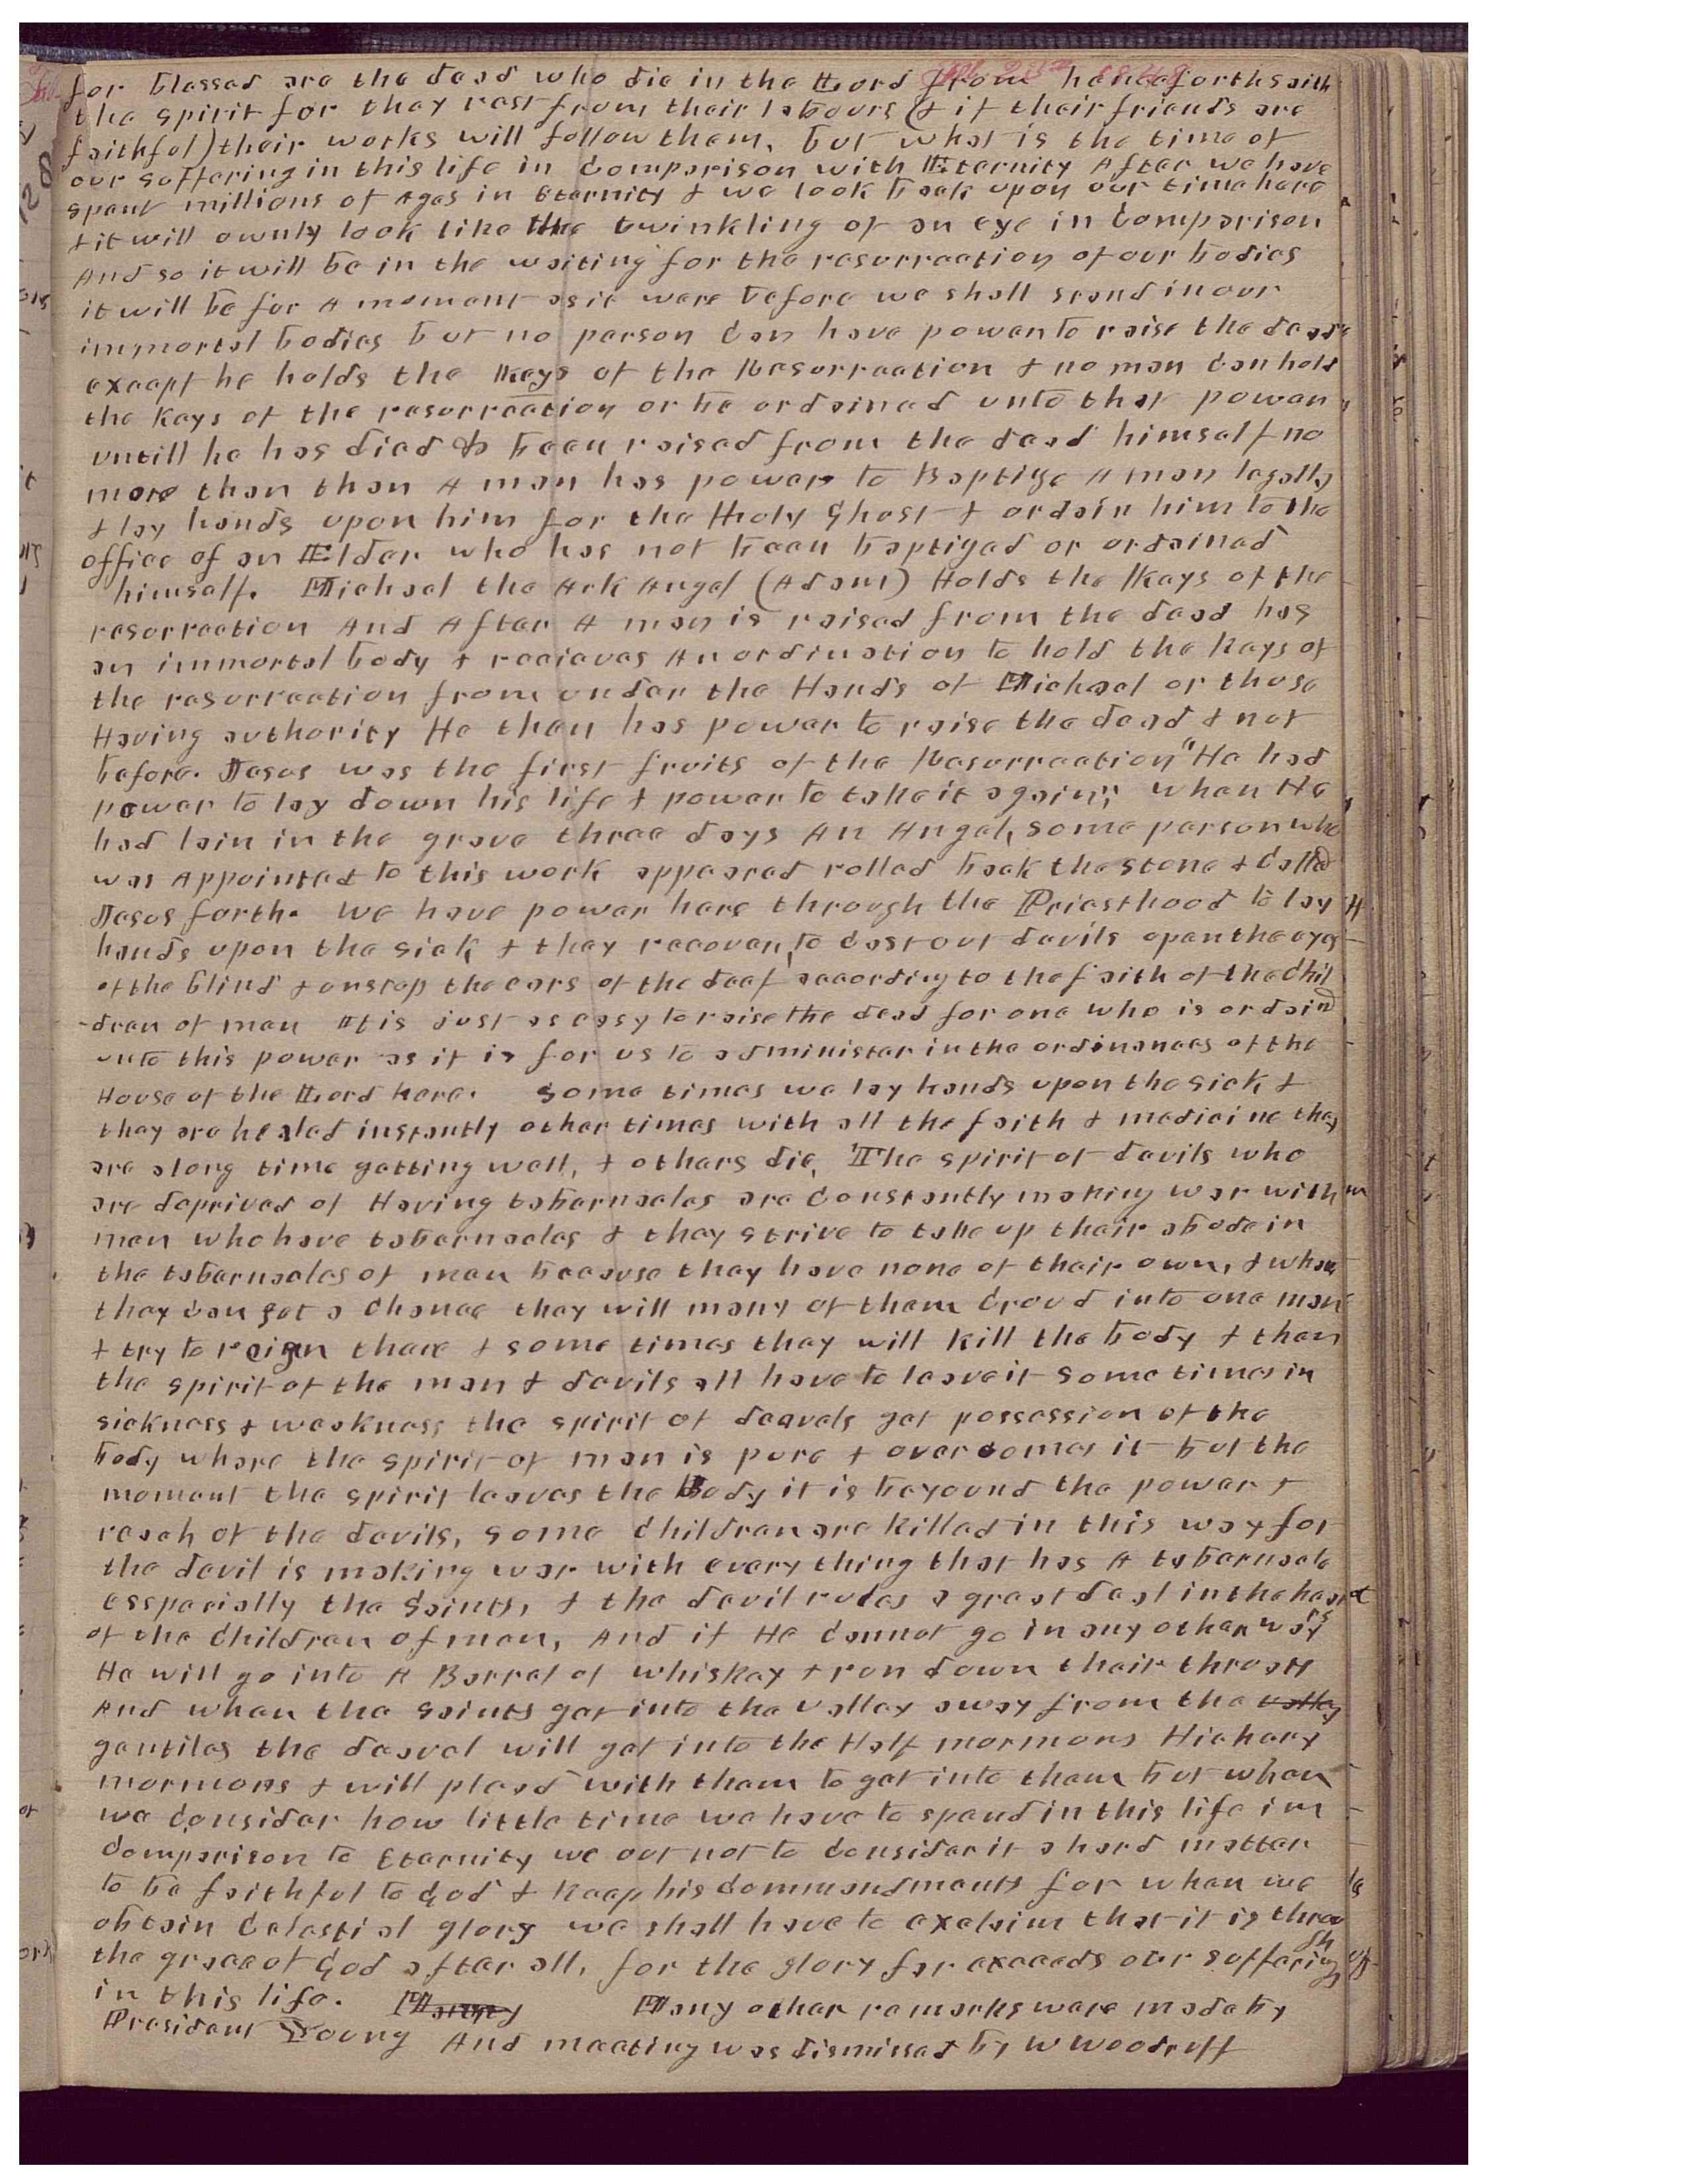 for blessed are the dead who die in the Lord from henceforth saith
the spirit for they rest from their labours (& if their friends are
faithful) their works will follow them, but what is the time of
our suffering in this life in Comparison with Eternity After we have
spent millions of Ages in Eternity & we look back upon our time here
& it will ownly look like the twinkling of an eye in Comparison
And so it will be in the waiting for the resurrection of our bodies
it will be for A moment as it were before we shall stand in our
immortal bodies but no person Can have power to raise the dead
except he holds the Keys of the Resurrection & no man Can hold
the Keys of the resurrection or be ordained unto that power
untill he has died & been raised from the dead himself no
more than than A man has power to Baptize A man legally
& lay hands upon him for the Holy Ghost & ordain him to the
office of an Elder who has not been baptized or ordained
himself. Michael the Ark Angel (Adam) Holds the Keys of the
resurrection And After A man is raised from the dead has
an immortal body & recieves An ordination to hold the Keys of
the resurrection from under the Hands of Michael or those
Having authority He then has power to raise the dead & not
before. Jesus was the first fruits of the Resurrection "He had
power to lay down his life & power to take it again;" when He
had lain in the grave three days An Angel, some person who
was Appointed to this work appeared rolled back the stone & Called
Jesus forth. We have power here through the Priesthood to lay
hands upon the sick & they recover, to Cast out devils open the eyes
of the blind & unstop the ears of the deaf according to the faith of the Chil
-dren of men It is just as easy to raise the dead for one who is ordaind
unto this power as it is for us to administer in the ordinances of the
House of the Lord here. Some times we lay hands upon the sick &
they are healed instantly other times with all the faith & medicine they
are along time getting well, & others die, The spirit of devils who
are deprived of Having tabernacles are Constantly making war with
men who have tabernacles & they strive to take up their abode in
the tabernacles of men because they have none of their own, & when
they Can get a Chance they will many of them Croud into one man
& try to reign there & some times they will kill the body & then
the spirit of the man & devils all have to leave it some times in
sickness & weakness the spirit of deavels get possession of the
body where the spirit of man is pure & overcomes it but the
moment the spirit leaves the Body it is beyound the power &
reach of the devils, some Children are killed in this way for
the devil is making war with every thing that has A tabernacle
esspecially the Saints, & the devil rules a great deal in the heart
of the Children of men, And if He Cannot go in any other ways
He will go into A Barrel of whiskey & run down their throats
And when the Saints get into the valley away from the valley
gentiles the deavel will get into the Half mormons Hickory
mormons & will plead with them to get into them but when
we Consider how little time we have to spend in this life im
Comparison to Eternity we out not to Consider it a hard matter
to be faithful to God & keep his Commandments for when we
obtain Celestial glory we shall have to exclaim that it is throu
gh
the grace of God after all, for the glory far exceeds our suffering
in this life. Many Many other remarks were made by
President Young And meeting was dismissed by W Woodruff